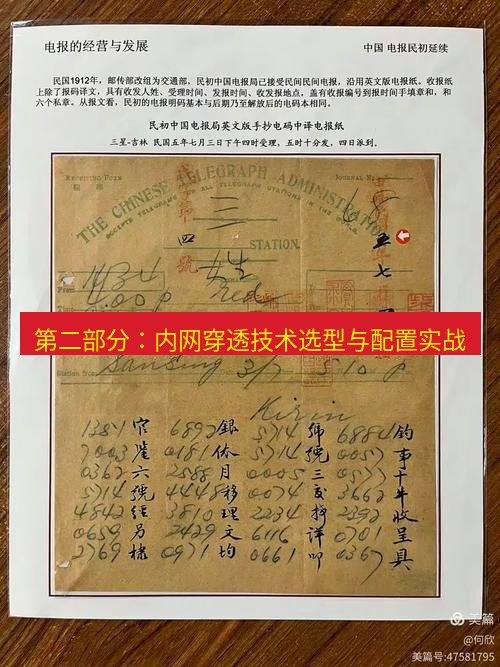 电报的经营与发展
中国 电报民初延续
民国1912年，邮传部改组为交通部，民初中国电报局已接受民间民间电报，沿用英文版电报纸。收报纸
上除了报码译文，具有收发人姓、受理时间、发报时间、收发报地点，盖有收报编号到报时间手填章和，和
六个私章。从报文看，民初的电报明码基本与后期乃至解放后的电码本相同。
民初中国电报局英文版手抄电码中译电报纸
三星-吉林 民国五年七月三日下午四时受理，五时十分发，四日派到。
RECEIVING FORM
JOURNAL No.
THE CHINESE TELEGRAPH ADMINISTRATION
ACCEPTS TELEGRAMS FOR ALL TELEGRAPH STATIONS IN THE WORLD.
第
三
四
號
STATION.
五
年
七
4.00 p
第二部分：内网穿透技术选型与配置实战
Station from
Sansing 3/7 5 10 p
Kirin
1381 官 6892 銀 5714 號 6884 鈞
7003 鑒 0181 休 5714 號 0057 事
0362 六 2588 月 0005 三 0577 十
5714 號 4448 移 0074 3662
4842 經 3810 理 2234 2392 收
0659 另 2429 文 6116 詳 0701 呈
2769 棣 0971 均 0661 叩 0367 具
美篇
@何欣
美篇号:47581795